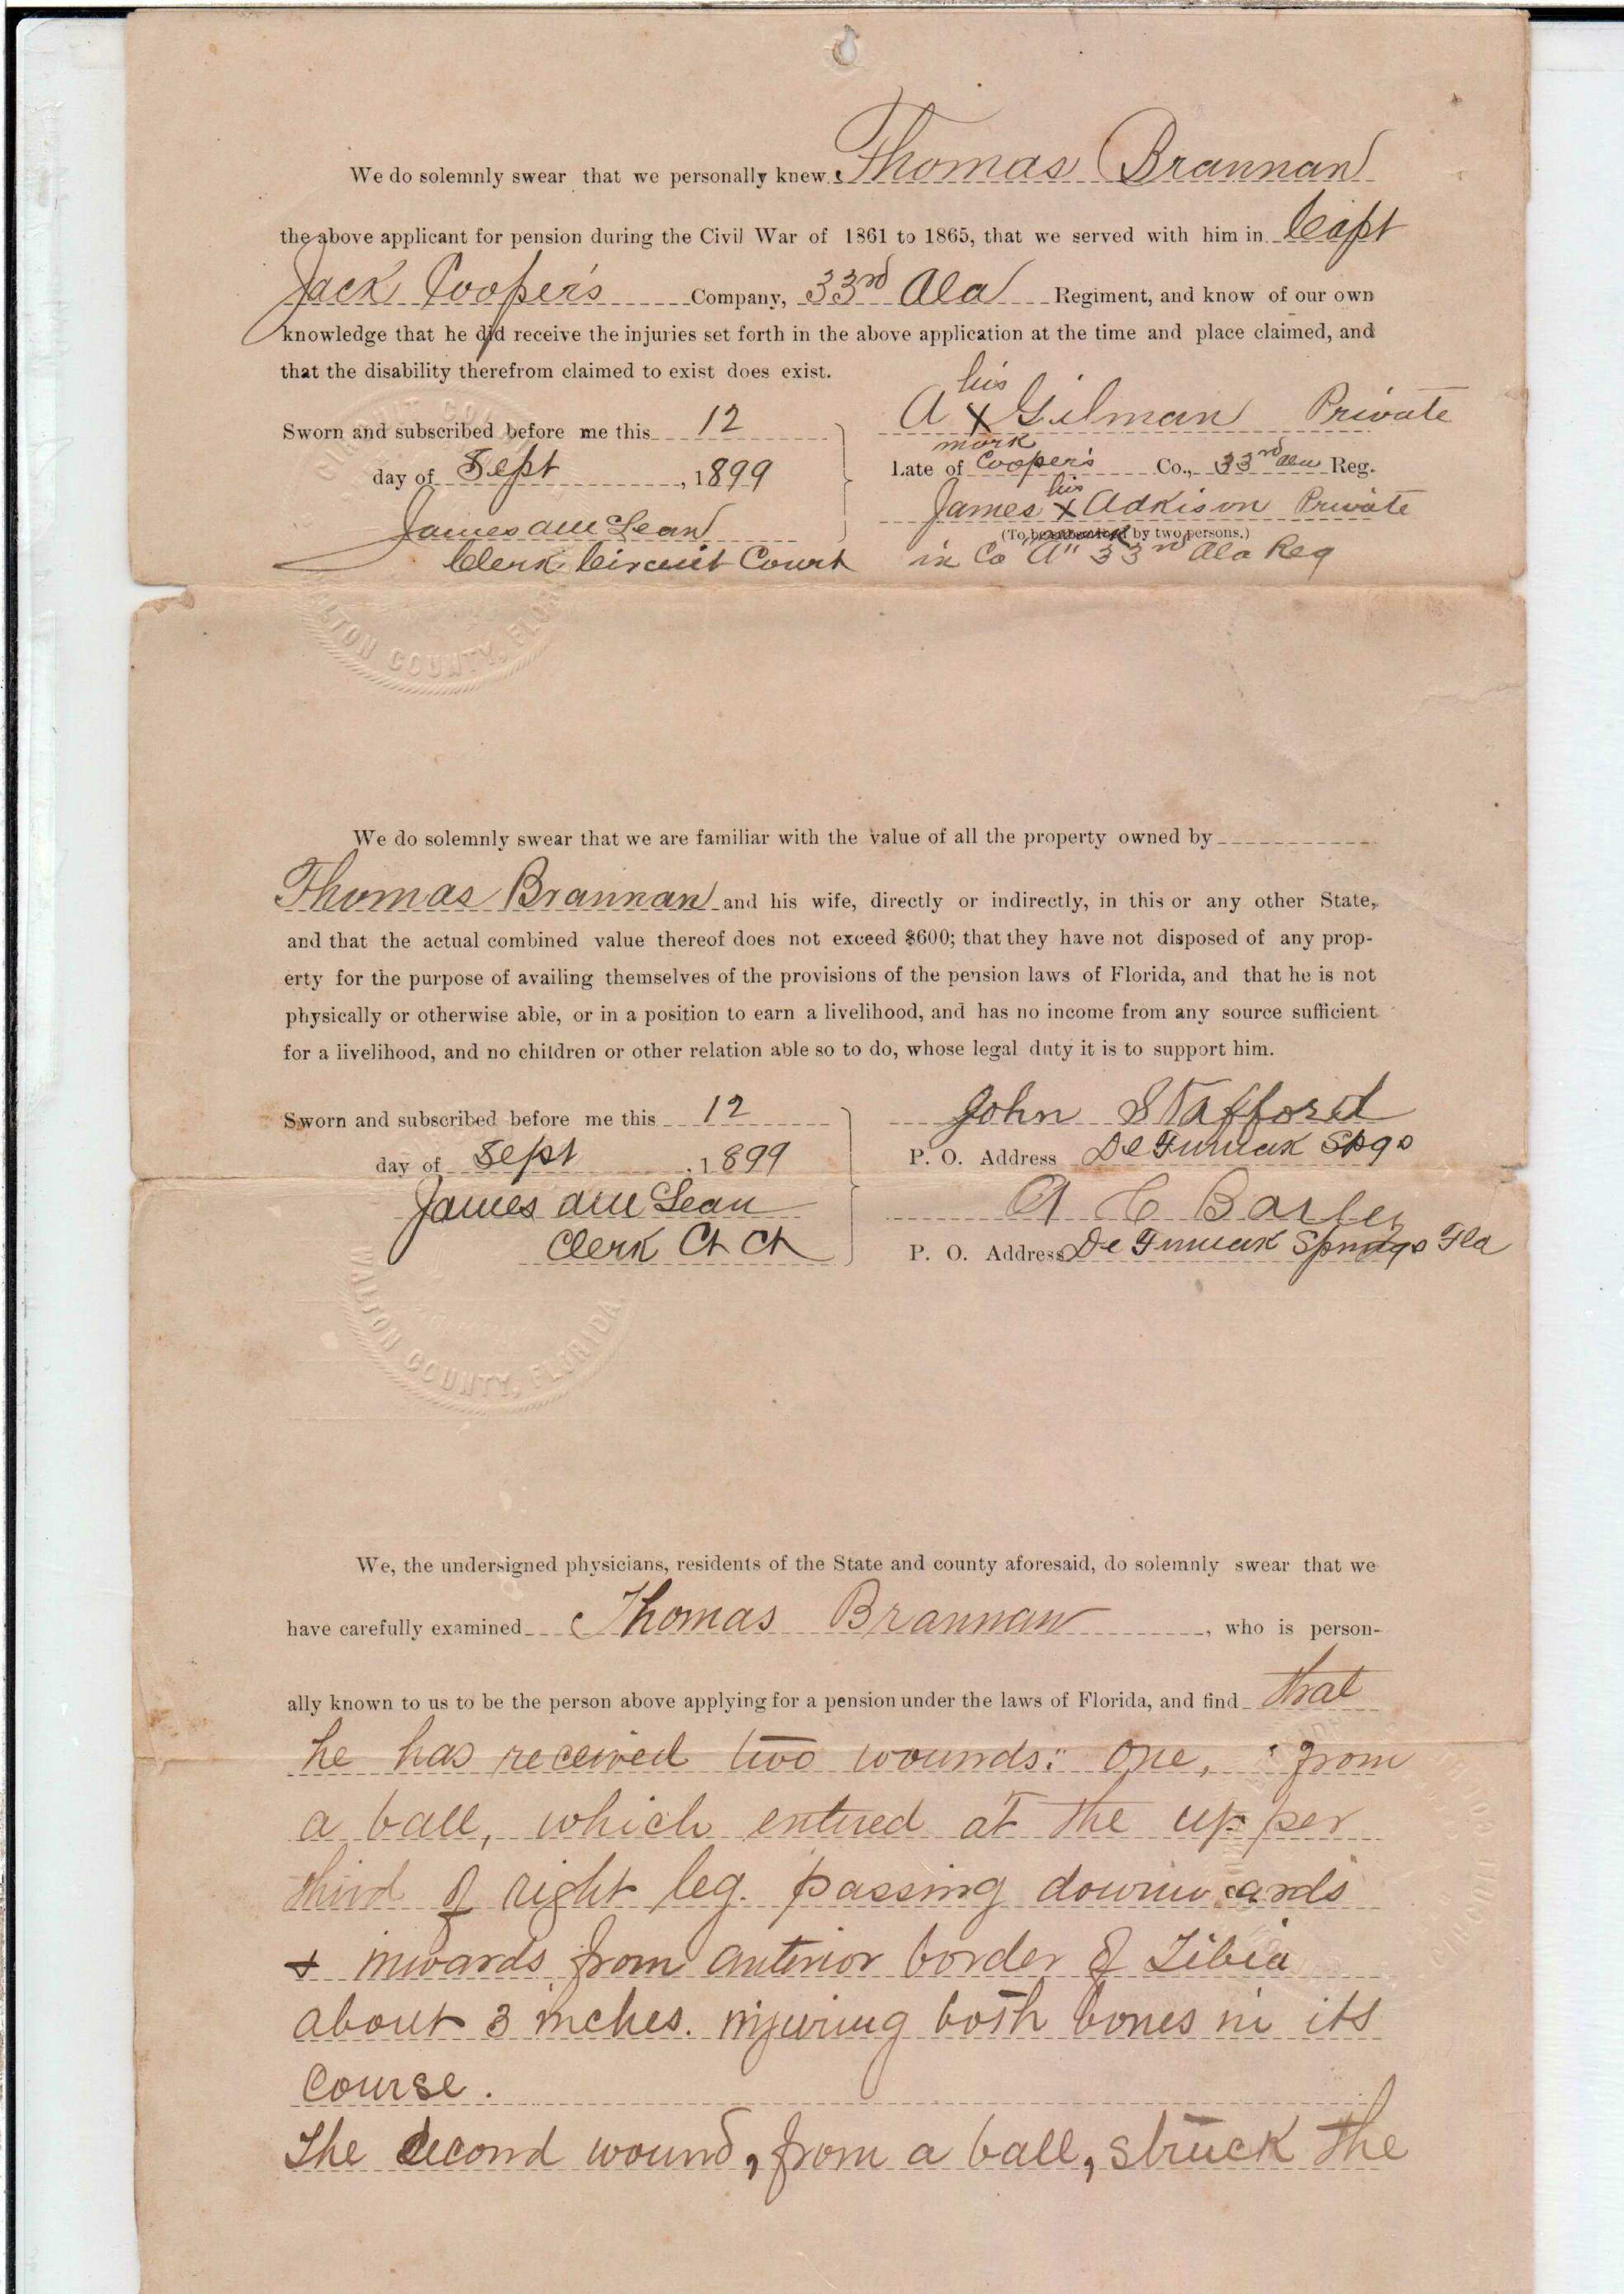 We do solemnly swear that we personally knew Thomas Brannan
the above applicant for pension during the Civil War of 1861 to 1865, that we served with him in Capt
Jack Cooper's Company, 33rd Ala Regiment, and know of our own
knowledge that he did receive the injuries set forth in the above application at the time and place claimed, and
that the disability therefrom claimed to exist does exist.
his
A X Gilman Private
mark
Sworn and subscribed before me this 12
day of Sept, 1899
Late of Cooper's Co., 33rd Ala Reg.
his
James X Adkison Private
James A McLean
(To be by two persons.)
Clerk Circuit Court
in Co "A" 33rd Ala Reg
WALTON COUNTY, FLORIDA
We do solemnly swear that we are familiar with the value of all the property owned by
Thomas Brannan and his wife, directly or indirectly, in this or any other State,
and that the actual combined value thereof does not exceed $600; that they have not disposed of any prop-
erty for the purpose of availing themselves of the provisions of the pension laws of Florida, and that he is not
physically or otherwise able, or in a position to earn a livelihood, and has no income from any source sufficient
for a livelihood, and no children or other relation able so to do, whose legal duty it is to support him.
Sworn and subscribed before me this 12
day of Sept, 1899
James A McLean
Clerk Ct Ct
John Stafford
P. O. Address De Funiak Spgs
A C
P. O. Address De Funiak Springs Fla
WALTON COUNTY, FLORIDA
We, the undersigned physicians, residents of the State and county aforesaid, do solemnly swear that we
have carefully examined Thomas Brannan, who is person-
ally known to us to be the person above applying for a pension under the laws of Florida, and find that
he has received two wounds: one, from
a ball, which entered at the upper
third of right leg. passing downwards
+ inwards from anterior border of Tibia
about 3 inches. injuring both bones in its
course.
The second wound, from a ball, struck the